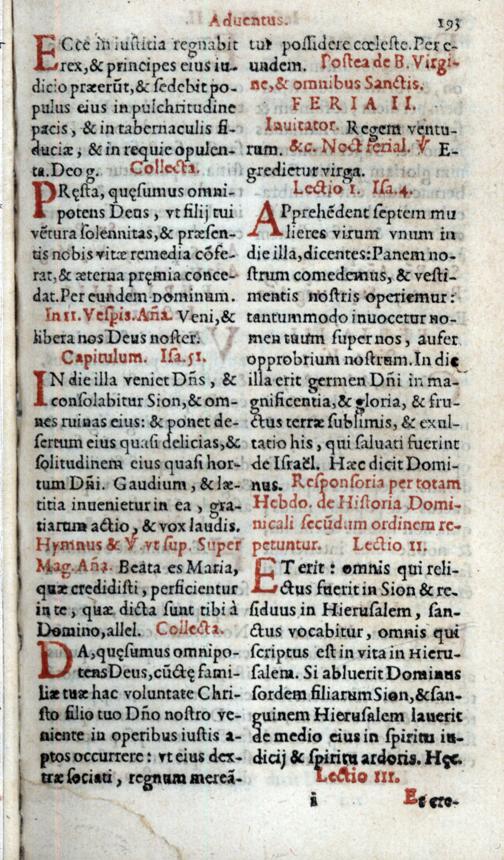 Aduentus. 193
ECce in iustitia regnabit
rex,& principes eius iu-
dicio præerūt,& sedebit po-
pulus eius in pulchritudine
pacis, & in tabernaculis fi-
duciæ, & in requie opulen-
ta. Deo g. Collecta.
PRęsta, quęsumus omni-
potens Deus, vt filij tui
vētura solennitas,& præsen-
tis nobis vitæ remedia cōfe-
rat,& æterna pręmia conce-
dat. Per eundem dominum.
In 11. Vespis. Aña. Veni,&
libera nos Deus noster.
Capitulum. Isa. 51.
IN die illa veniet Dñs, &
consolabitur Sion,& om-
nes ruinas eius: & ponet de-
sertum eius quasi delicias,&
solitudinem eius quasi hor-
tum Dñi. Gaudium, & læ-
titia inuenietur in ea, gra-
tiarum actio, & vox laudis.
Hymnus & ℣. vt sup. Super
Mag. Aña. Beata es Maria,
quæ credidisti, perficientur
in te, quæ dicta sunt tibi à
Domino,allel. Collecta.
DA,quęsumus omnipo-
tens Deus,cūctę fami-
liæ tuæ hac voluntate Chri-
sto filio tuo Dño nostro ve-
niente in operibus iustis a-
ptos occurrere: vt eius dex-
træ sociati, regnum mereā-
tur possidere cœleste. Per e-
undem. Postea de B. Virgi-
ne,& omnibus Sanctis.
FERIA II.
Inuitator. Regem ventu-
rum. &c. Noct ferial. ℣ E-
gredietur virga.
Lectio 1. Isa. 4.
APprehēdent septem mu
lieres virum vnum in
die illa,dicentes: Panem no-
strum comedemus, & vesti-
mentis nostris operiemur:
tantummodo inuocetur no-
men tuum super nos, aufer
opprobrium nostrum. In die
illa erit germen Dñi in ma-
gnificentia,& gloria, & fru-
ctus terræ sublimis, & exul-
tatio his, qui saluati fuerint
de Israël. Hæc dicit Domi-
nus. Responsoria per totam
Hebdo. de Historia Domi-
nicali secūdum ordinem re-
petuntur. Lectio 11.
ET erit: omnis qui reli-
ctus fuerit in Sion & re-
siduus in Hierusalem, san-
ctus vocabitur, omnis qui
scriptus est in vita in Hieru-
salem. Si abluerit Dominus
sordem filiarum Sion,& san-
guinem Hierusalem lauerit
de medio eius in spiritu iu-
dicij & spiritu ardoris. Hęc.
Lectio 111.
i Et cre-